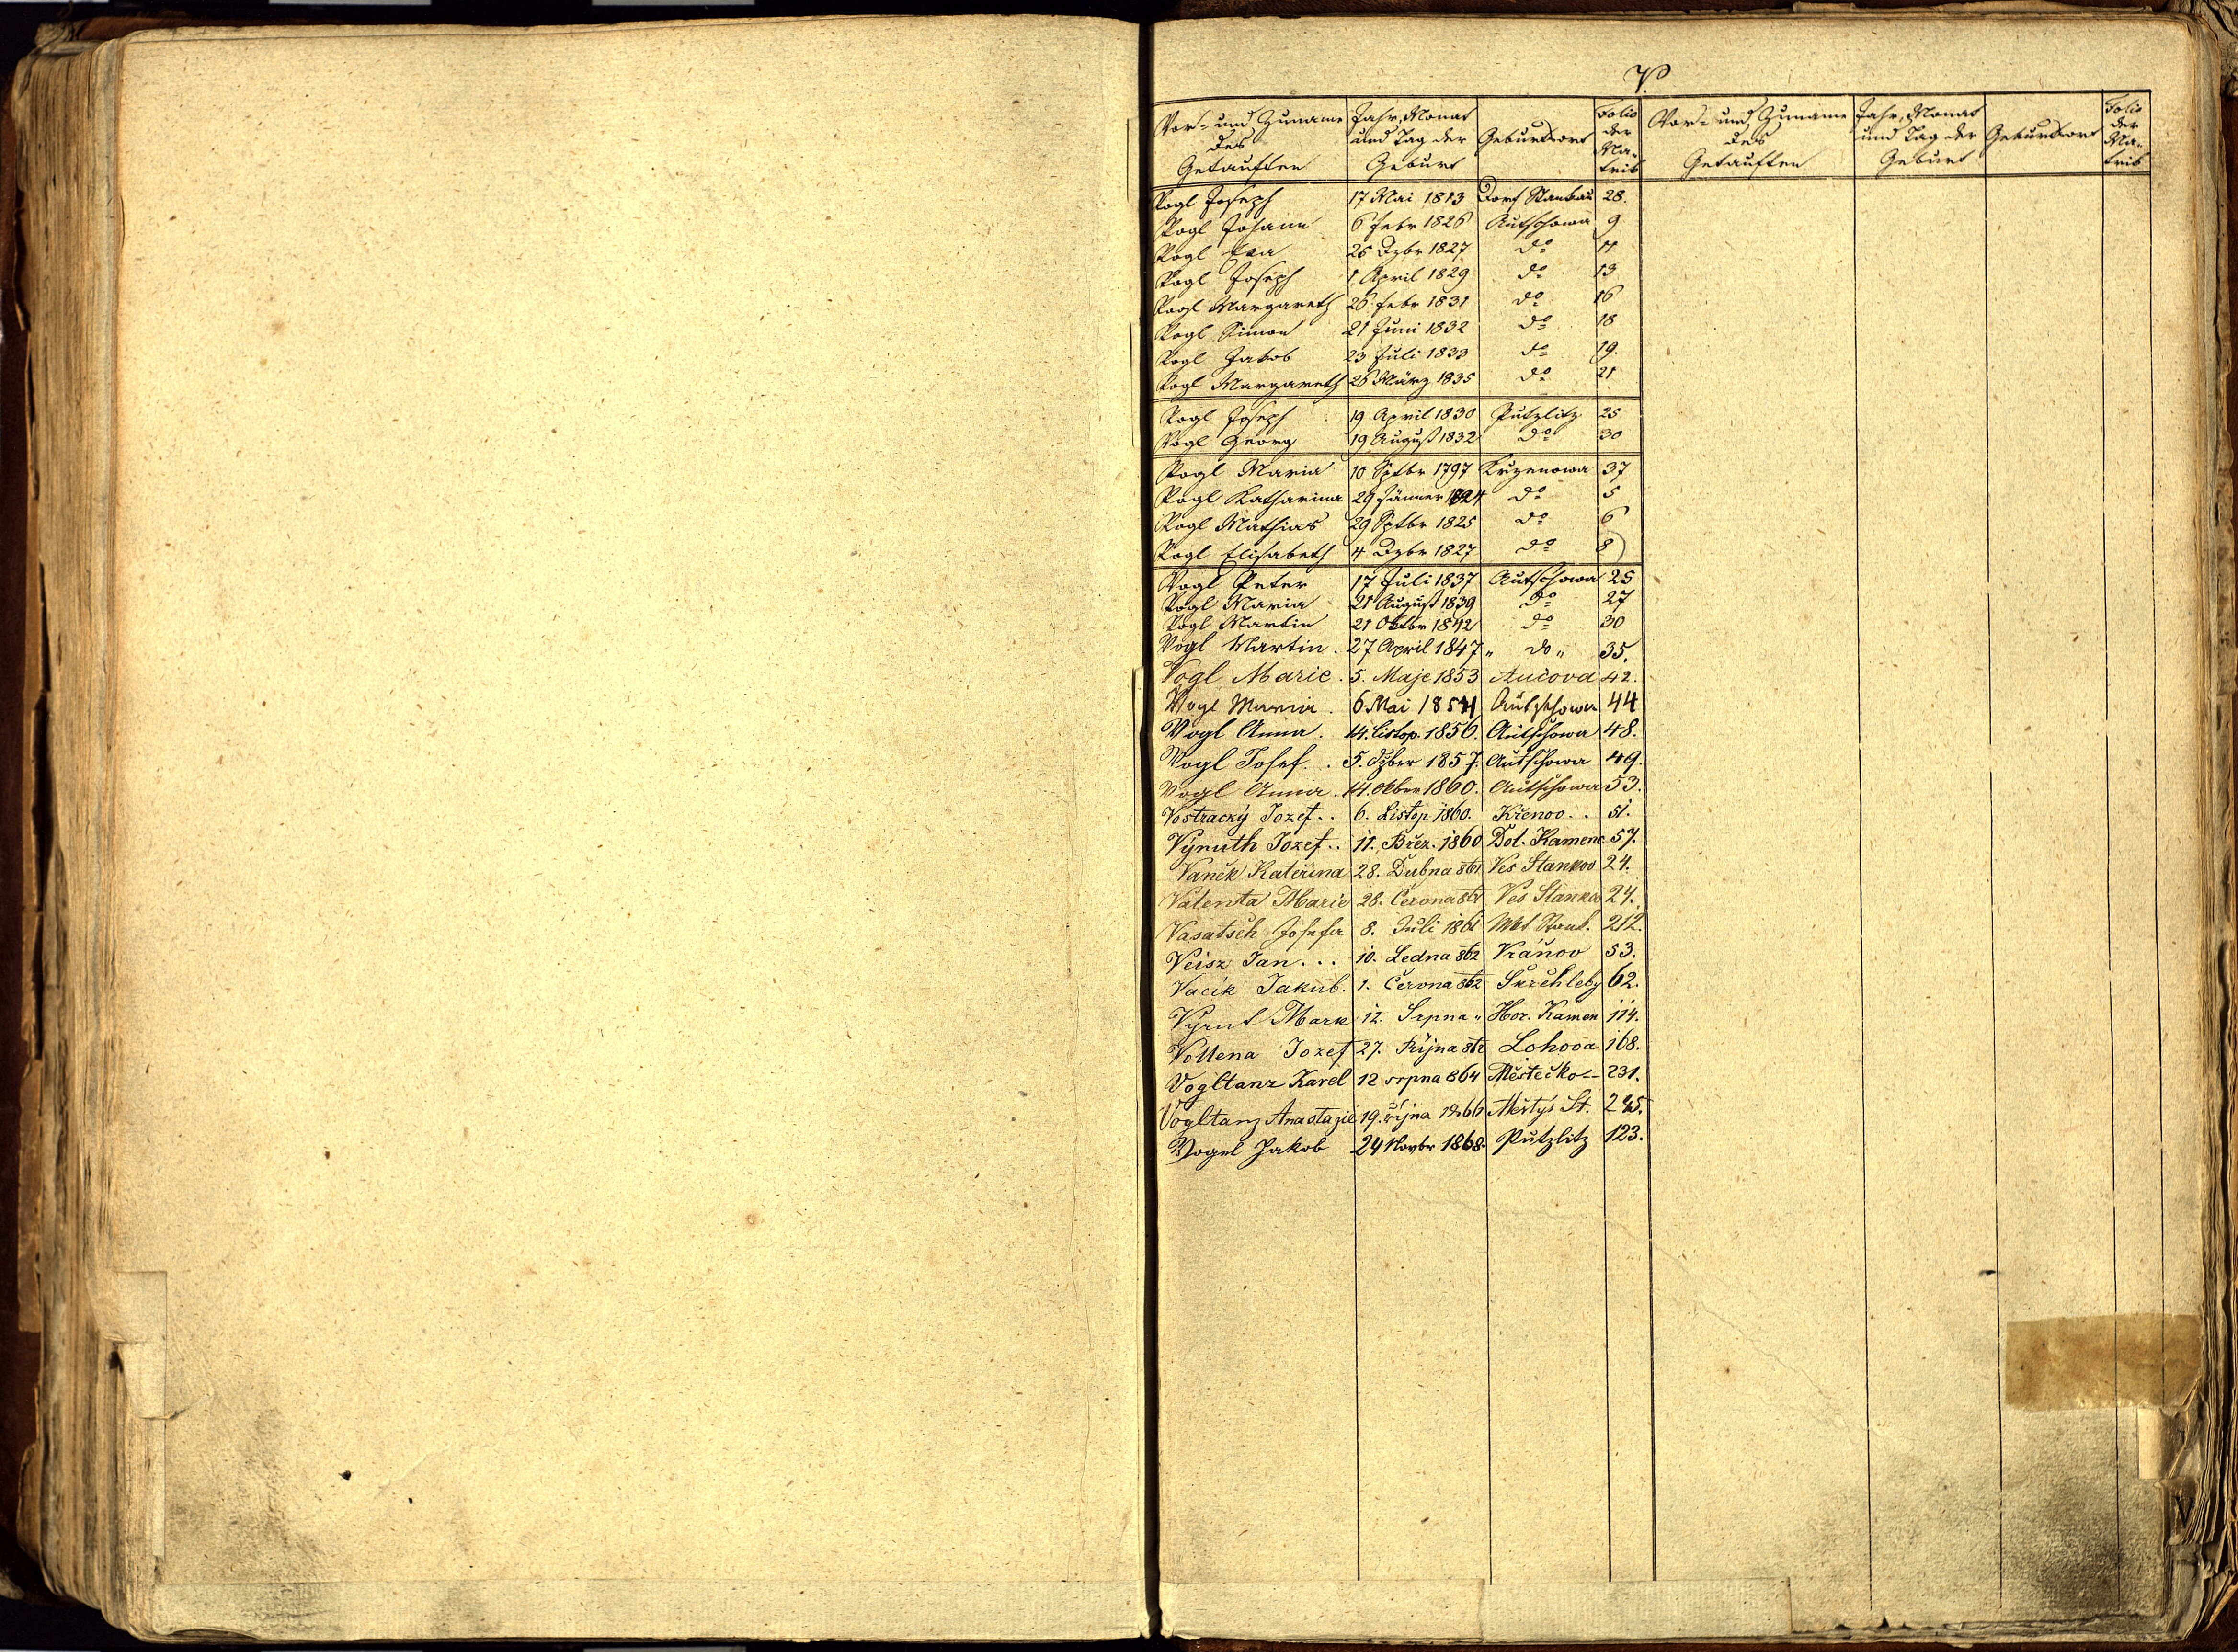 V.
Vor- und Zuname des Getauften | Jahr, Monat und Tag der Geburt | Geburtsort | Folio der Matrik | Vor- und Zuname des Getauften | Jahr, Monat und Tag der Geburt | Geburtsort | Folio der Matrik
Vogl Joseph 17 Mai 1813 Dorf Stankau 28.
Vogl Johann 6 Febr 1826 Autschowa 9
Vogl Eva 25 Dzbr 1827 do 11
Vogl Joseph 1 April 1829 do 13
Vogl Margareth 26 Febr 1831 do 16
Vogl Simon 21 Juni 1832 do 18
Vogl Jakob 23 Juli 1833 do 19.
Vogl Margareth 26 März 1835 do 21
Vogl Joseph 19 April 1830 Putzlitz 25
Vogl Georg 19 August 1832 do 30
Vogl Maria 10 Sptbr 1797 Krzenowa 37
Vogl Katharina 29 Jänner 1824 do 5
Vogl Mathias 29 Sptbr 1825 do 6
Vogl Elisabeth 4 Dzbr 1827 do 8
Vogl Peter 17 Juli 1837 Autschowa 25
Vogl Maria 21 August 1839 do 27
Vogl Martin 21 Oktbr 1842 do 30
Vogl Martin. 27 April 1847 " do " 35.
Vogl Marie. 5. Maje 1853 Aučova 42.
Vogl Maria. 6 Mai 1854 Autschowa 44
Vogl Anna. 14. listop. 1856. Autschowa 48.
Vogl Josef. . 5. Dzber 1857. Autschowa 49.
Vogl Anna. 14. Oktbr 1860. Autschowa 53.
Vostracky Jozef. . 6. Listop 1860. Křenov. . 51.
Vyruth Jozef. . 11. Břez. 1860 Dol. Kamene 57.
Vaněk Kateřina 28. Dubna 861 Ves Stankov 24.
Valenta Marie 28. Června 861 Ves Stankov 24.
Vasatsch Josefa 8. Juli 1861 Mkt Stank. 212.
Veisz Jan. . . 10. Ledna 862 Vránov 53.
Vacik Jakub. 1. Června 862 Šuchleby 62.
Vyrut Mark 12. Srpna " Hor. Kamen 114.
Voltena Jozef 27. Října 862 Lohova 168.
Vogltanz Karel 12 srpna 864 Městečko 231.
Vogltanz Anastazie 19. října 1866 Městys St. 245.
Vogel Jakob 24 Novbr 1868. Putzlitz 123.
V